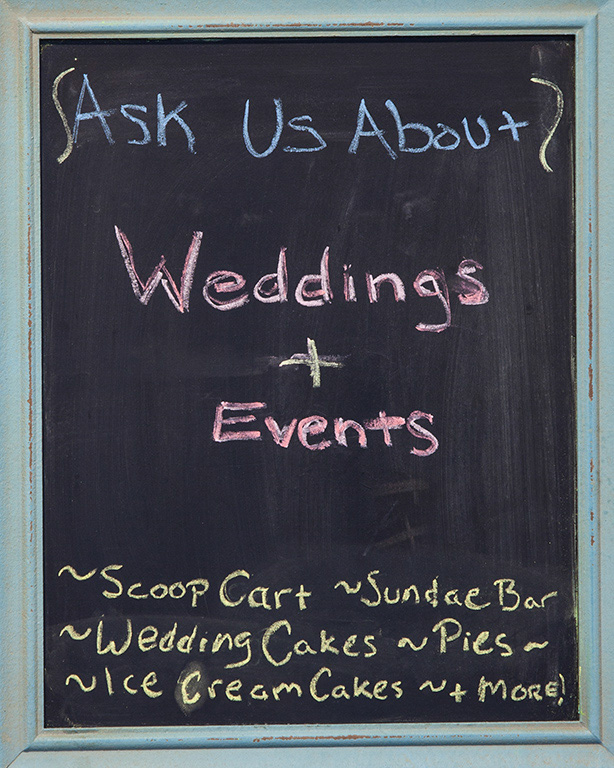 {Ask Us About}
Weddings
+
Events
~Scoop Cart ~Sundae Bar
~Wedding Cakes ~Pies~
~Ice Cream Cakes ~+ MORE!